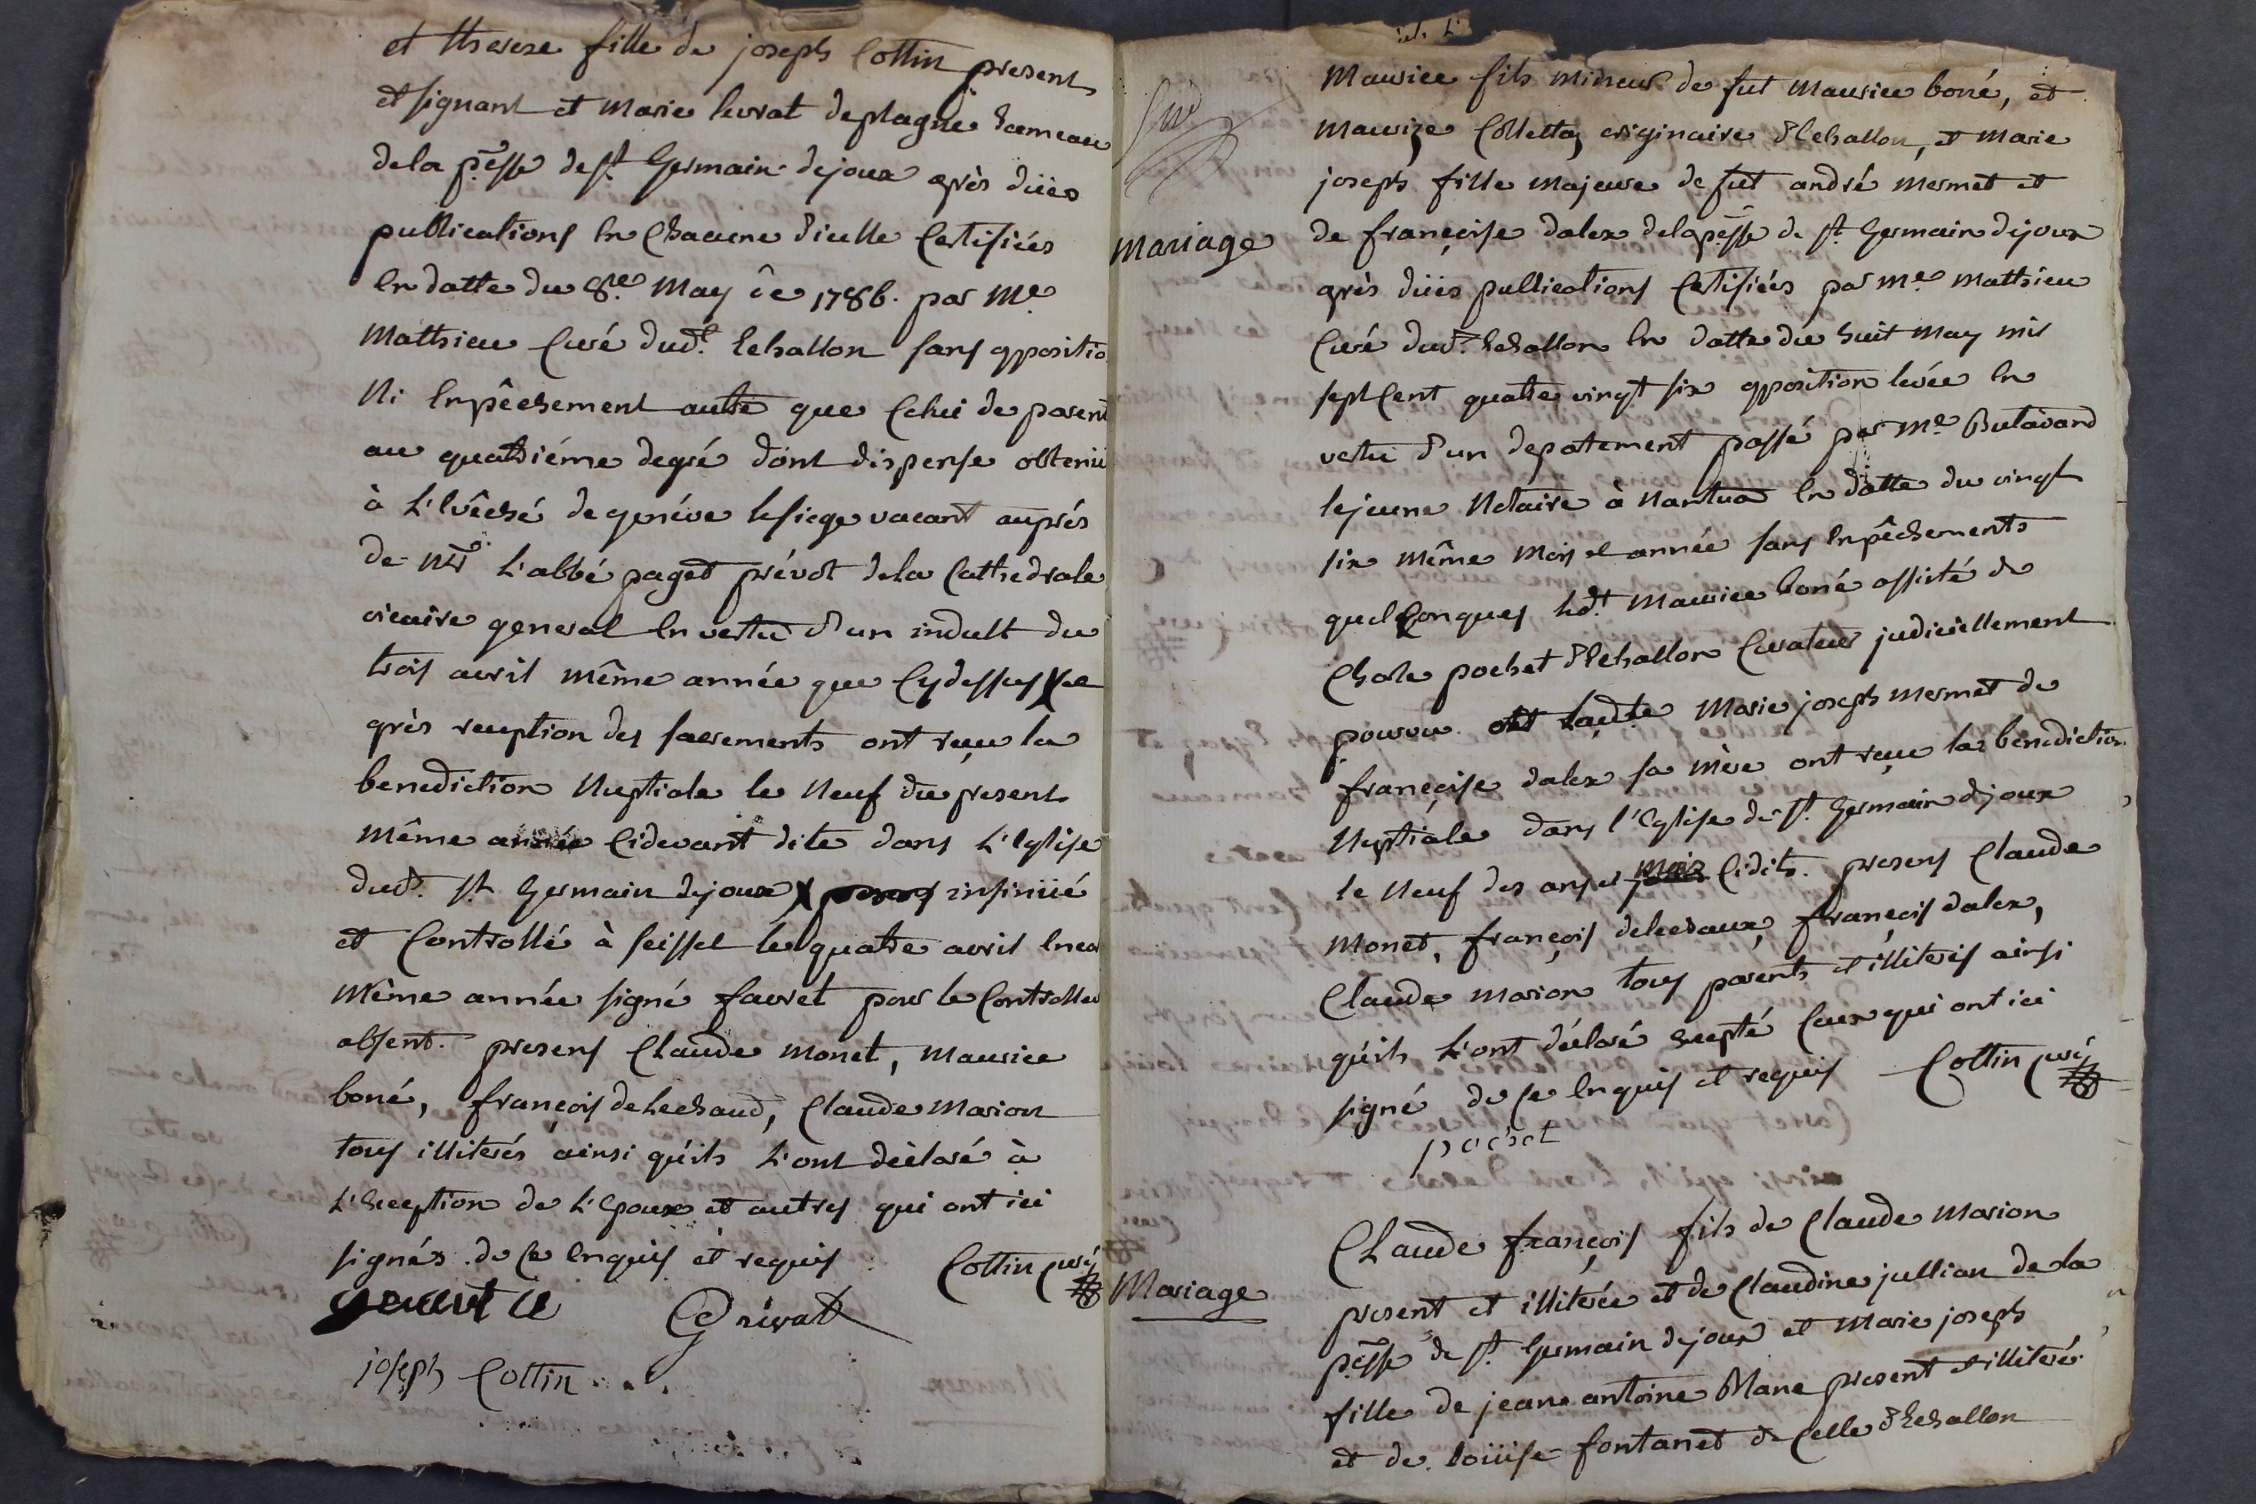 et therese fille de joseph Cottin present
et signant et Marie livrat deplagne hameau
dela psse de st. Germain dejoux après düës
publications en Chacune d'icelle Certifiées
en datte du 8e. May de 1786. par Me
Mathieu Curé dudt. Echallon sans oppositio
Ni Enpêchement autre que Celui de parent
au quatriéme degré dont dispense obtenüe
à L'Evêché de genève le siege vacant auprés
de Mr L'abbé paget prévot dela Cathedrale
vicaire general en vertu d'un indult du
trois avril même année que Cydessus X et
après reception des sacrements ont reçu la
benediction Nuptiale le Neuf du present
même année Cidevant dite dans L'Eglise
dudt. st. Germain dejoux X insinüé
et Controllé à seissel le quatre avril
même année signé favret pour le Controlleu
absent. presens Claude monet, Maurice
boné, françois delechaud, Claude Marion
tous illiterés ainsi qu'ils L'ont déclaré à
L'Exception de L'Epoux et autres qui ont ici
signés de ce Enquis et requis Cottin Curé
Grivat
joseph Cottin
Mariage
Maurice fils mineur de fut Maurice boné, et
Maurize Colletta, originaire d'Echallon, et Marie
joseph fille Majeure de fut andré Mermet et
de françoise dalex dela psse de st. Germain dejoux
après düës publications Certifiées par Me. Matthieu
Curé dudt. Echallon en datte du huit May mil
sept Cent quatre vingt six opposition levée en
vertu d'un departement passé par Me. Butavand
lejeune Notaire à Nantua en datte du vingt
six même Mois et année sans Enpêchements
quelConques ledt. Maurice boné assisté de
Charle pochet d'Echallon Curateur judiciellement
pourvu et ladte Marie joseph mermet de
françoise dalex sa mère ont reçu la benediction
Nuptiale dans l'Eglise de st. Germain dejoux
le Neuf des ans et mois Cidits. presens Claude
Monet, françois delechaux, françois dalex,
Claude marion tous parents et illiterés ainsi
qu'ils L'ont déclaré Excepté Ceux qui ont ici
signé de ce Enquis et requis Cottin Curé
pochet
Mariage
Claude françois fils de Claude Marion
present et illiterée et de Claudine jullian de la
psse de st. Germain dejoux et Marie joseph
fille de jean antoine Blanc present et illiteré
et de loüise fontanet de Celle d'Echallon